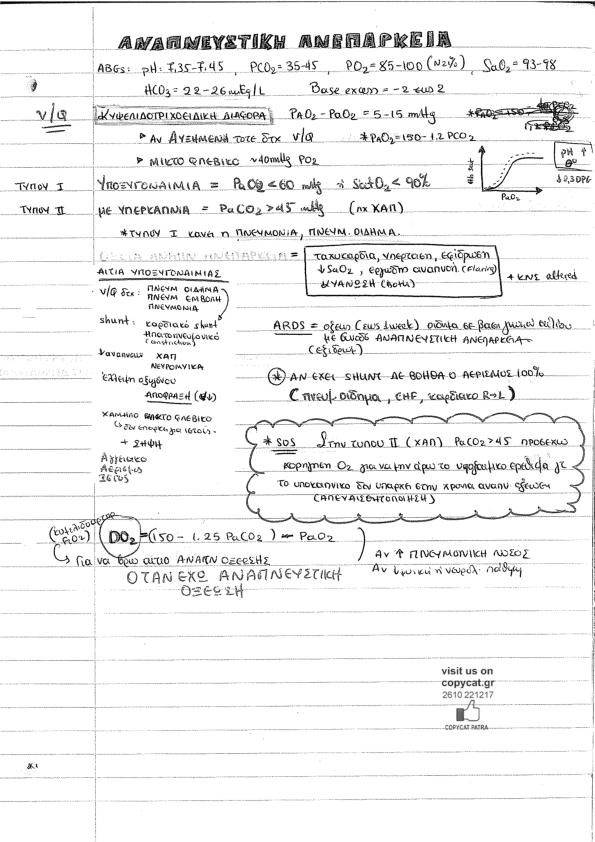 ΑΝΑΠΝΕΥΣΤΙΚΗ ΑΝΕΠΑΡΚΕΙΑ
ABGs: pH: 7,35-7,45, PCO2 = 35-45, PO2 = 85-100 (N21%), SaO2 = 93-98
HCO3 = 22-26 mEq/L Base excess = -2 εως 2
V/Q ΚΥΨΕΛΙΔΟΤΡΙΧΟΕΙΔΙΚΗ ΔΙΑΦΟΡΑ PAO2 - PaO2 = 5-15 mmHg
▸ Αν ΑΥΞΗΜΕΝΗ τοτε δτχ V/Q * PAO2 = 150 - 1.2 PCO2
▸ ΜΙΚΤΟ ΦΛΕΒΙΚΟ ~40mmHg PO2
pH ↑
θ°
↓2,3 DPG
Hb Sat
PaO2
ΤΥΠΟΥ Ι ΥΠΟΞΥΓΟΝΑΙΜΙΑ = PaO2 < 60 mmHg ή SatO2 < 90%
ΤΥΠΟΥ ΙΙ ΜΕ ΥΠΕΡΚΑΠΝΙΑ = PaCO2 > 45 mmHg (πχ ΧΑΠ)
* ΤΥΠΟΥ Ι κανει η ΠΝΕΥΜΟΝΙΑ, ΠΝΕΥΜ. ΟΙΔΗΜΑ.
ΟΞΕΙΑ ΑΝΑΠΝ ΑΝΕΠΑΡΚΕΙΑ = ταχυκαρδια, υπερταση, εφιδρωση
↓ SaO2, εργωδη αναπνοη (Flaring)
ΚΥΑΝΩΣΗ
+ ΚΝΣ altered
ΑΙΤΙΑ ΥΠΟΞΥΓΟΝΑΙΜΙΑΣ
V/Q δτχ: ΠΝΕΥΜ ΟΙΔΗΜΑ
ΠΝΕΥΜ ΕΜΒΟΛΗ
ΠΝΕΥΜΟΝΙΑ
shunt: καρδιακο shunt
Ηπατοπνευμονικο
Υποαερισμος ΧΑΠ
ΝΕΥΡΟΜΥΙΚΑ
έλλειψη οξυγόνου
ΑΠΟΦΡΑΞΗ
ΧΑΜΗΛΟ ΜΙΚΤΟ ΦΛΕΒΙΚΟ
↳ δεν επαρκη για ιστους
+ ΣΗΨΗ
Αγγειακο
Αερισμος
Ιστος
ARDS = οξεως (εως 1 week) οιδημα σε βαση
με συνοδο ΑΝΑΠΝΕΥΣΤΙΚΗ ΑΝΕΠΑΡΚΕΙΑ
(εξιδρωμ)
* ΑΝ ΕΧΕΙ SHUNT ΔΕ ΒΟΗΘΑ Ο ΑΕΡΙΣΜΟΣ 100%
(πνευμ. οιδημα, CHF, καρδιακο R→L)
* SOS Στην τυπου ΙΙ (ΧΑΠ) PaCO2 > 45 προσεχω
χορηγηση O2 για να μην αρω το υποξαιμικο ερεθισμα γτ
το υποκαπνικο δεν υπαρχει στην χρονια αναπν οξεωση
(ΑΠΕΥΑΙΣΘΗΤΟΠΟΙΗΣΗ)
DO2 = (150 - 1.25 PaCO2) - PaO2
↳ Για να βρω αιτιο ΑΝΑΠΝ ΟΞΕΩΣΗΣ
ΟΤΑΝ ΕΧΩ ΑΝΑΠΝΕΥΣΤΙΚΗ
ΟΞΕΩΣΗ
Αν ↑ ΠΝΕΥΜΟΝΙΚΗ ΝΟΣΟΣ
visit us on
copycat.gr
2610 221217
COPYCAT PATRA